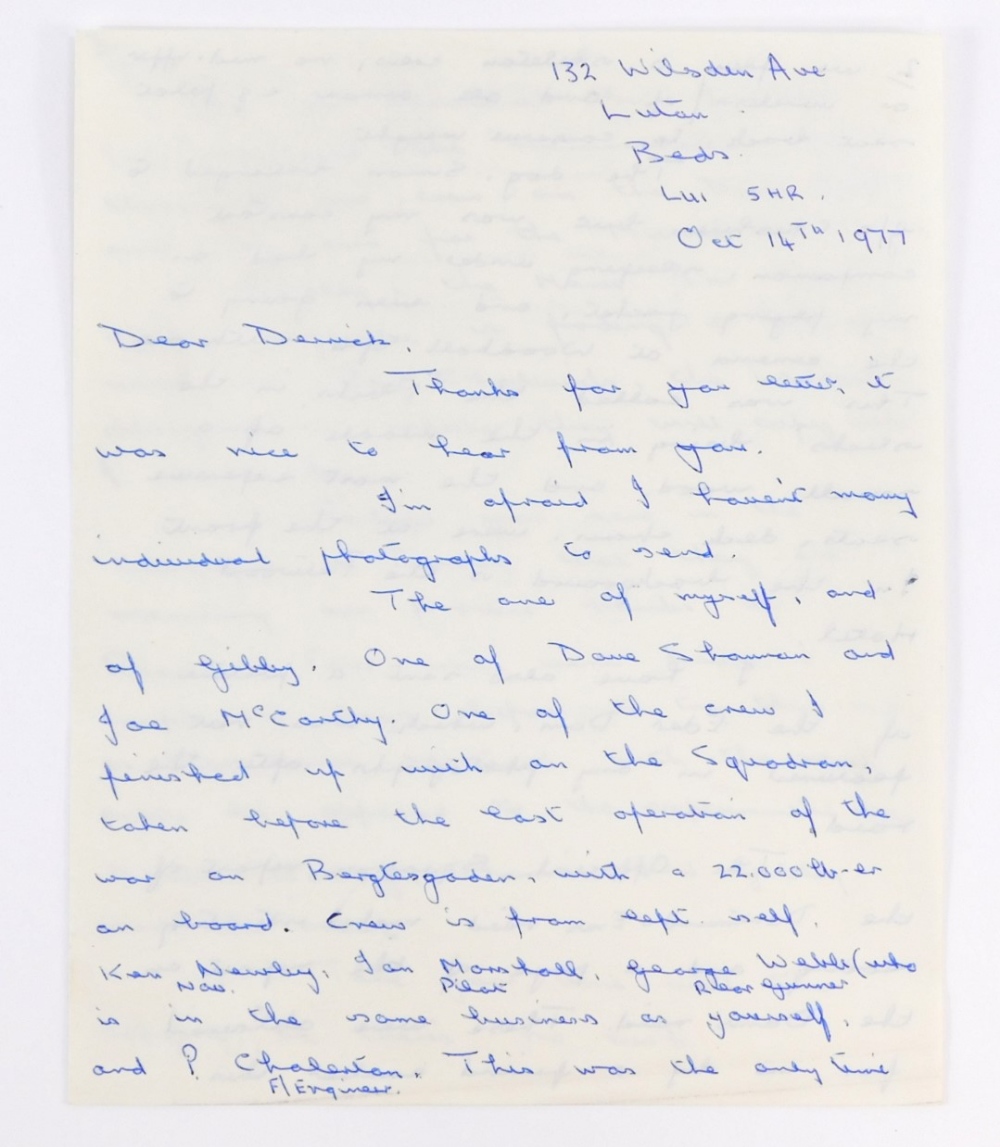 132 Wilsden Ave
Luton.
Beds.
LU1 5HR.
Oct 14TH 1977
Dear Derrick.
Thanks for you letter, it
was nice to hear from you.
I'm afraid I haven't many
individual photographs to send.
The one of myself, and
of Gibby. One of Dave Shannan and
Joe McCarthy. One of the crew I
finished up with on the Squadron,
taken before the last operation of the
war on Bergtesgaden, with a 22.000 lb-er
on board. Crew is from left self.
Ken Newby, Ian Marshall, George Webb (who
Nav. Pilot Rear gunner
is in the same business as yourself,
and ? Chalerton. This was the only time
F/Engineer.